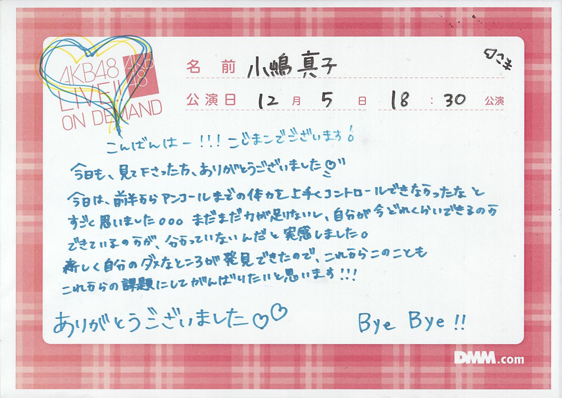 AKB48
LIVE!!
ON DEMAND
AKB
48
名前 小嶋真子
♡こま
公演日 12月 5日 18:30 公演
こんばんはー!!!こじまこでございます!
今日も、見て下さった方、ありがとうございました♡
今日は、前半からアンコールまでの体力を上手くコントロールできなかったなと
すごく思いました。。。まだまだ力が足りないし、自分が今どれくらいできるのか
できているのかが、分っていないんだと実感しました。
新しく自分のダメなところが発見できたので、これからこのことも
これからの課題にしてがんばりたいと思います!!!
ありがとうございました♡♡
Bye Bye!!
DMM.com